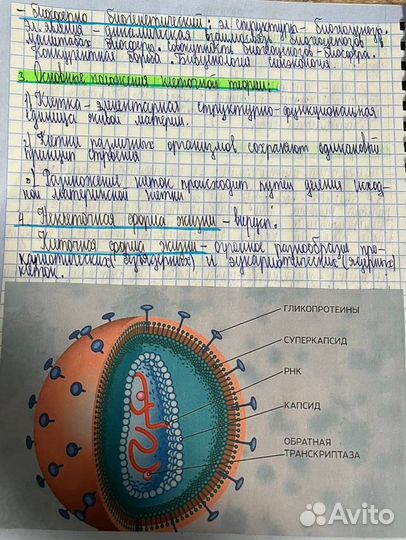 - Биосферно - биогенетический: эл. структура - биогидроценоз.
Эл. явления - динамическая взаимосвязь биогеоценозов в
масштабах биосферы. Совокупность биогеоценозов - биосфера.
3. Основные положения клеточной теории.
1) Клетка - элементарная структурно-функциональная
единица живой материи.
2) Клетки различных организмов сохраняют одинаковый
принцип строения
3) Размножение клеток происходит путем деления исход-
ной материнской клетки
4. Неклеточная форма жизни - вирусы.
Клеточная форма жизни - огромное разнообразие про-
кариотических (безядерных) и эукариотических (ядерных)
клеток.
ГЛИКОПРОТЕИНЫ
СУПЕРКАПСИД
РНК
КАПСИД
ОБРАТНАЯ
ТРАНСКРИПТАЗА
Avito